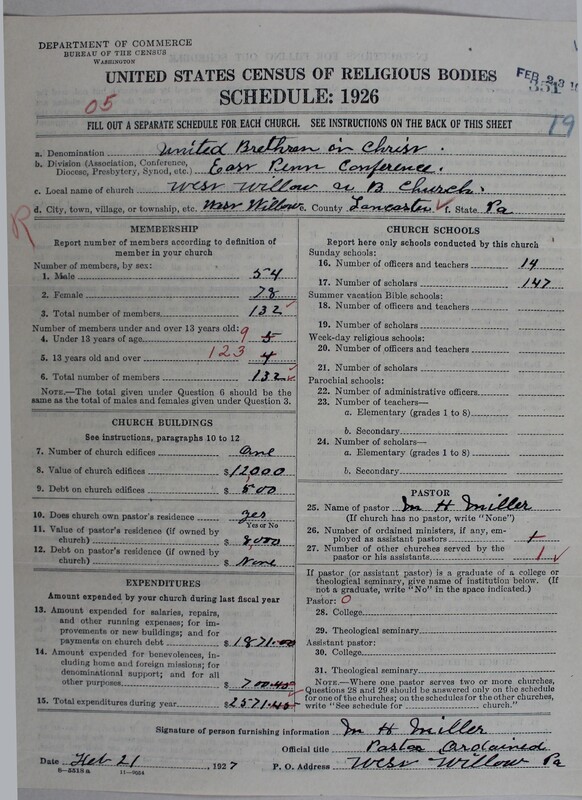 DEPARTMENT OF COMMERCE
BUREAU OF THE CENSUS
WASHINGTON
UNITED STATES CENSUS OF RELIGIOUS BODIES
SCHEDULE: 1926
FEB 23
351
05
19
FILL OUT A SEPARATE SCHEDULE FOR EACH CHURCH. SEE INSTRUCTIONS ON THE BACK OF THIS SHEET
a. Denomination United Brethren in Christ.
b. Division (Association, Conference, Diocese, Presbytery, Synod, etc.) East Penn Conference.
c. Local name of church West Willow U B Church.
d. City, town, village, or township, etc. West Willow e. County Lancaster f. State Pa
R
MEMBERSHIP
Report number of members according to definition of
member in your church
Number of members, by sex:
1. Male 54
2. Female 78
3. Total number of members 132
Number of members under and over 13 years old:
4. Under 13 years of age 9 5
5. 13 years old and over 123 4
6. Total number of members 132
NOTE.—The total given under Question 6 should be the
same as the total of males and females given under Question 3.
CHURCH BUILDINGS
See instructions, paragraphs 10 to 12
7. Number of church edifices one
8. Value of church edifices $12000
9. Debt on church edifices $500
10. Does church own pastor's residence yes
Yes or No
11. Value of pastor's residence (if owned by
church) $8,000
12. Debt on pastor's residence (if owned by
church) $None
EXPENDITURES
Amount expended by your church during last fiscal year
13. Amount expended for salaries, repairs,
and other running expenses; for im-
provements or new buildings; and for
payments on church debt $1871.00
14. Amount expended for benevolences, in-
cluding home and foreign missions; for
denominational support; and for all
other purposes $700.40
15. Total expenditures during year $2571.40
CHURCH SCHOOLS
Report here only schools conducted by this church
Sunday schools:
16. Number of officers and teachers 14
17. Number of scholars 147
Summer vacation Bible schools:
18. Number of officers and teachers
19. Number of scholars
Week-day religious schools:
20. Number of officers and teachers
21. Number of scholars
Parochial schools:
22. Number of administrative officers
23. Number of teachers—
a. Elementary (grades 1 to 8)
b. Secondary
24. Number of scholars—
a. Elementary (grades 1 to 8)
b. Secondary
PASTOR
25. Name of pastor M H Miller
(If church has no pastor, write "None")
26. Number of ordained ministers, if any, em-
ployed as assistant pastors
27. Number of other churches served by the
pastor or his assistants 1
If pastor (or assistant pastor) is a graduate of a college or
theological seminary, give name of institution below. (If
not a graduate, write "No" in the space indicated.)
Pastor: 0
28. College
29. Theological seminary
Assistant pastor:
30. College
31. Theological seminary
NOTE.—Where one pastor serves two or more churches,
Questions 28 and 29 should be answered only on the schedule
for one of the churches; on the schedules for the other churches,
write "See schedule for church."
Signature of person furnishing information M H Miller
Official title Pastor Ordained
Date Feb 21 1927 P. O. Address West Willow Pa
8—5518a 11—9034